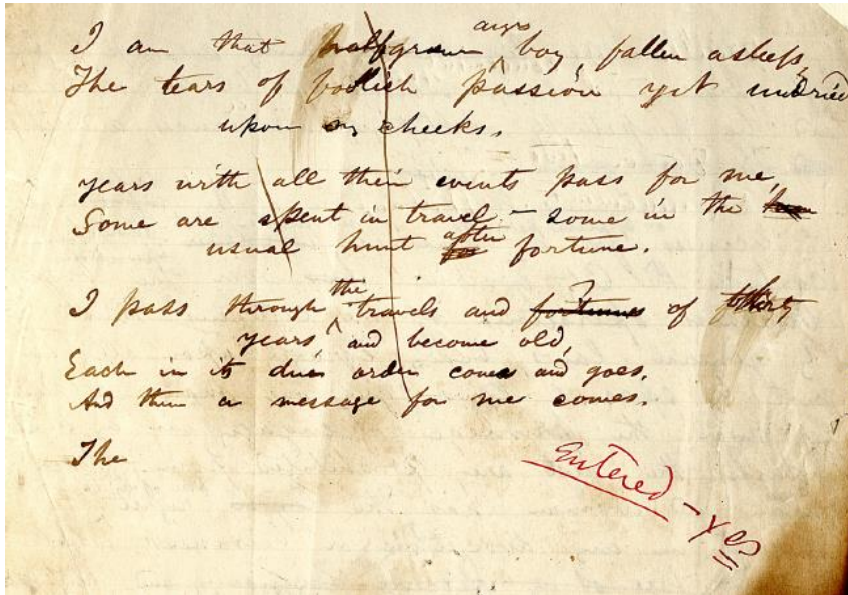 I am that halfgrown angry boy, fallen asleep,
The tears of foolish passion yet undried
upon my cheeks.
years with all their events pass for me,
Some are spent in travel – some in the
usual hunt for after fortune.
I pass through the travels and fortunes of thirty
years and become old,
Each in its due order comes and goes,
And then a message for me comes.
The
Entered – Yes